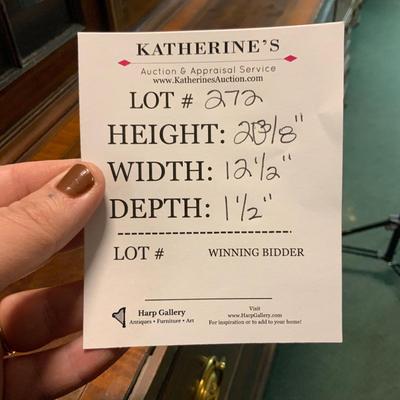 KATHERINE'S
Auction & Appraisal Service
www.KatherinesAuction.com
LOT # 272
HEIGHT:
WIDTH: 12 1/2"
DEPTH: 1 1/2"
LOT # WINNING BIDDER
Harp Gallery
Antiques • Furniture • Art
Visit
www.HarpGallery.com
For inspiration or to add to your home!